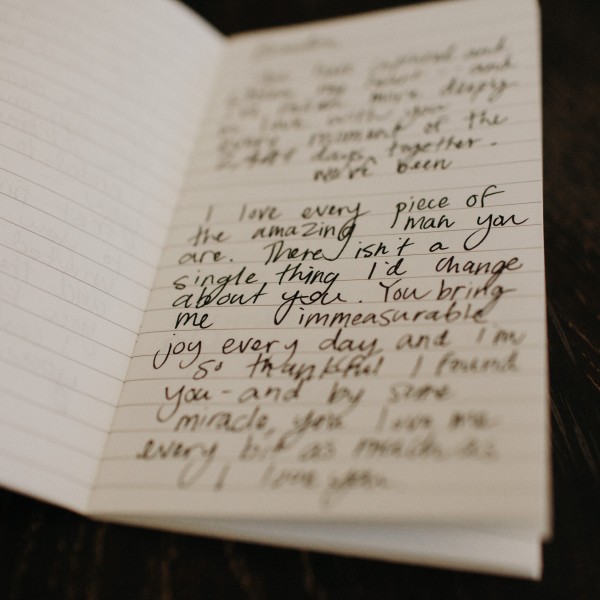 more deeply
in love with you
every moment of the
days together.
we've been
I love every piece of
the amazing man you
are. There isn't a
single thing I'd change
about you. You bring
me immeasurable
joy every day and I'm
so thankful I found
you - and by some
miracle, you love me
every bit as much as
I love you.